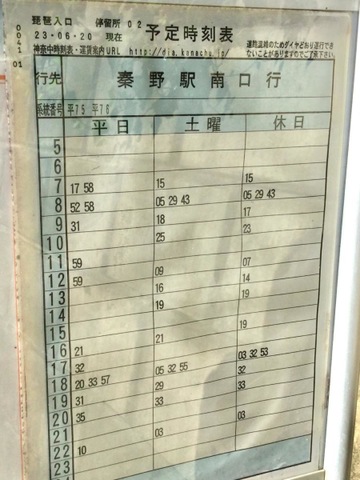 0041 01
琵琶入口 停留所 02
23-06-20 現在
予定時刻表
道路混雑のためダイヤどおり運行でき
ないことがありますのでご了承下さい。
神奈中時刻表・運賃案内URL http://dia.kanachu.jp/
行先 秦野駅南口行
系統番号 平75 平76
平日 土曜 休日
5
6
7 17 58 15 15
8 52 58 05 29 43 05 29 43
9 31 18 17
10 25 23
11 59
12 59 09 07
13 16 14
14 19
15 21 19
16 21 03 32 53
17 32 05 32 55 32
18 20 33 57 29 33
19 31 33
20 35
21 03 03
22 10
23
24